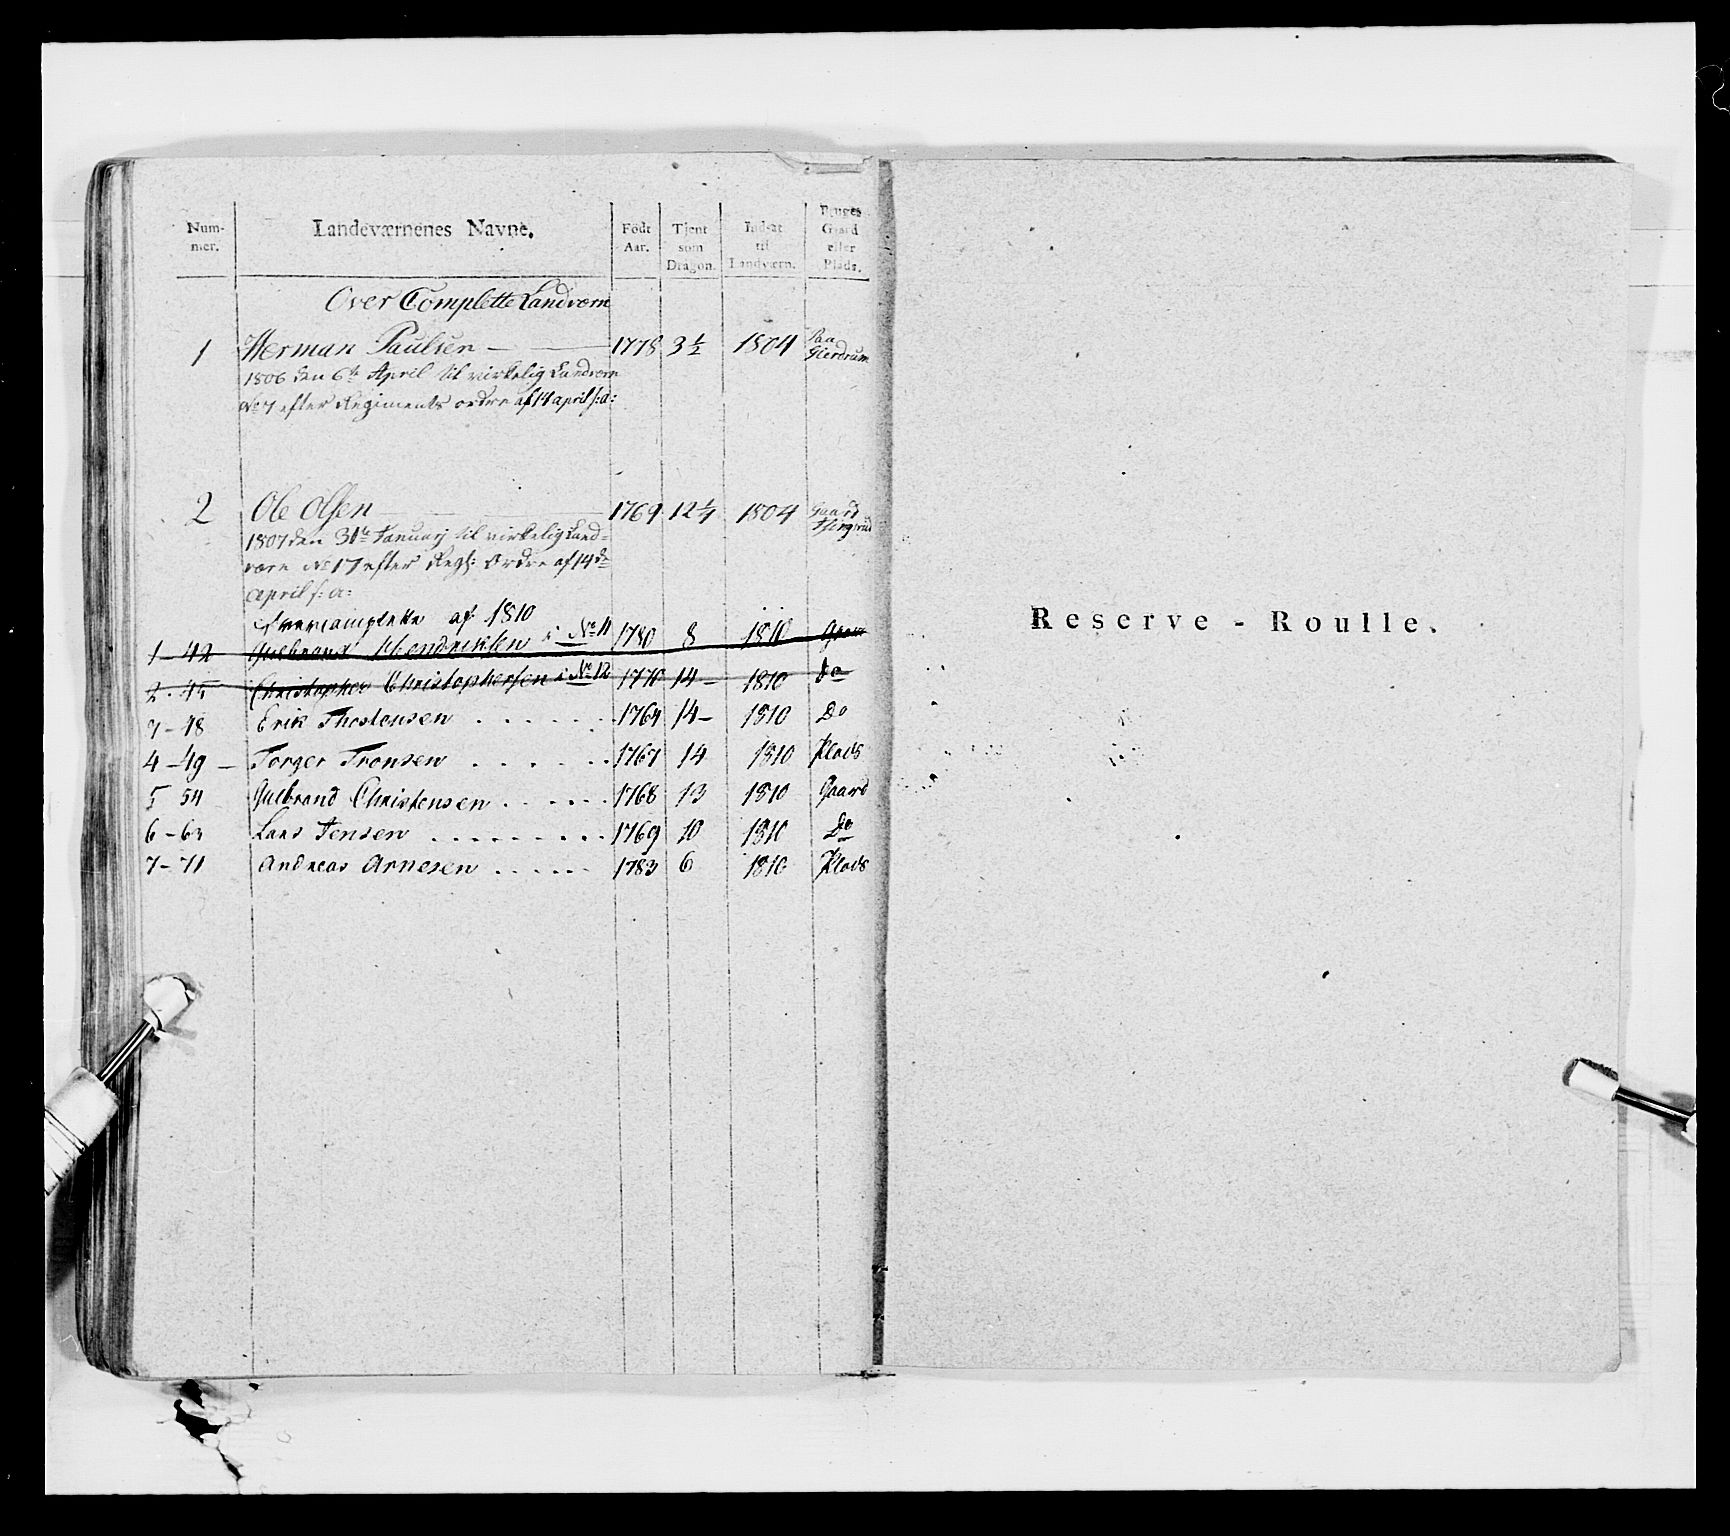 Num-
mer.
Landeværnenes Navne.
Födt
Aar.
Tjent
som
Dragon.
Indsat
til
Landværn.
Bruges
Gaard
eller
Plads.
Over Complette Landværn
1 Herman Paulsen — 1778 3½ 1804 Paa Gierdrum
1806 den 6te April til virkelig Landværn
No 7 efter Regiments ordre af 14 april s: a:
2 Ole Olsen 1769 12¼ 1804 Gaard
1807 den 31te Januarj til virkelig Land-
værn No 17 efter Regts: Ordre af 14de
April s: a:
Overcomplette af 1810
1 - 42 Gulbrand Hendriksen i No 11 1780 8 1810 Gaard
2 - 45 Christopher Christophersen i No 12 1770 14 - 1810 Do
3 - 48 Erik Thostensen . . . . . . 1764 14 - 1810 Do
4 - 49 - Torger Tronsen . . . . . . 1767 14 1810 Plads
5 54 Gulbrand Christensen . . . . . . 1768 13 1810 Gaard
6 - 63 Lars Jensen . . . . . . . . 1769 10 1810 Do
7 - 71 Andreas Arnesen . . . . . . 1783 6 1810 Plads
Reserve - Roulle.